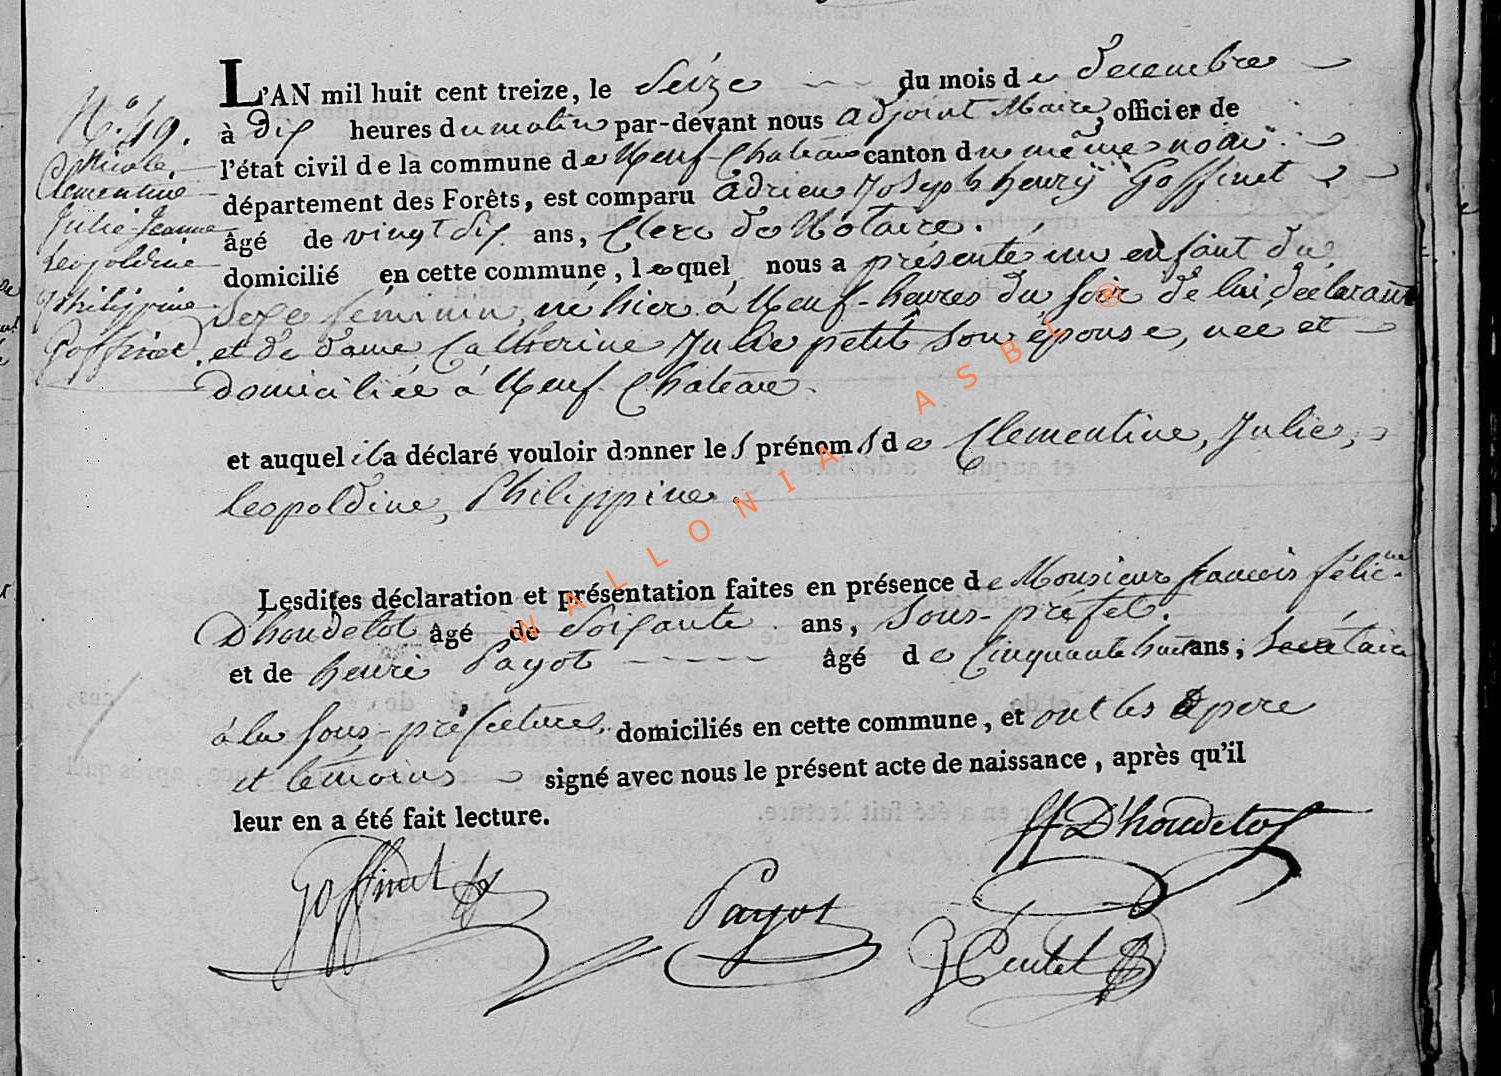 N.° 49.
Nicole,
Clementine
Julie-Jeanne
Leopoldine
Philippine
Goffinet.
L'AN mil huit cent treize, le Seize du mois de Decembre
à Dix heures du matin par-devant nous adjoint Maire, officier de
l'état civil de la commune de Neuf-Chateau canton du même nom
département des Forêts, est comparu Adrien Joseph henry Goffinet
âgé de vingt dix ans, Clerc de Notaire.
domicilié en cette commune, lequel nous a présenté un enfant du
Sexe féminin, né hier à Neuf-heures du soir de lui Déclarant
et de dame Catherine Julie petit son épouse, née et
domiciliée à Neuf Chateau.
et auquel il a déclaré vouloir donner les prénoms de Clementine, Julie,
Leopoldine, Philippine.
Lesdites déclaration et présentation faites en présence de Monsieur francois félic.ne
D'houdetot âgé de Soixante ans, Sous-préfet.
et de henri Payot âgé de Cinquante huit ans, Secrétaire
à la Sous-préfecture, domiciliés en cette commune, et ont les père
et témoins signé avec nous le présent acte de naissance, après qu'il
leur en a été fait lecture.
ff D'houdetot
Goffinet
Payot
WALLONIA ASBL ®